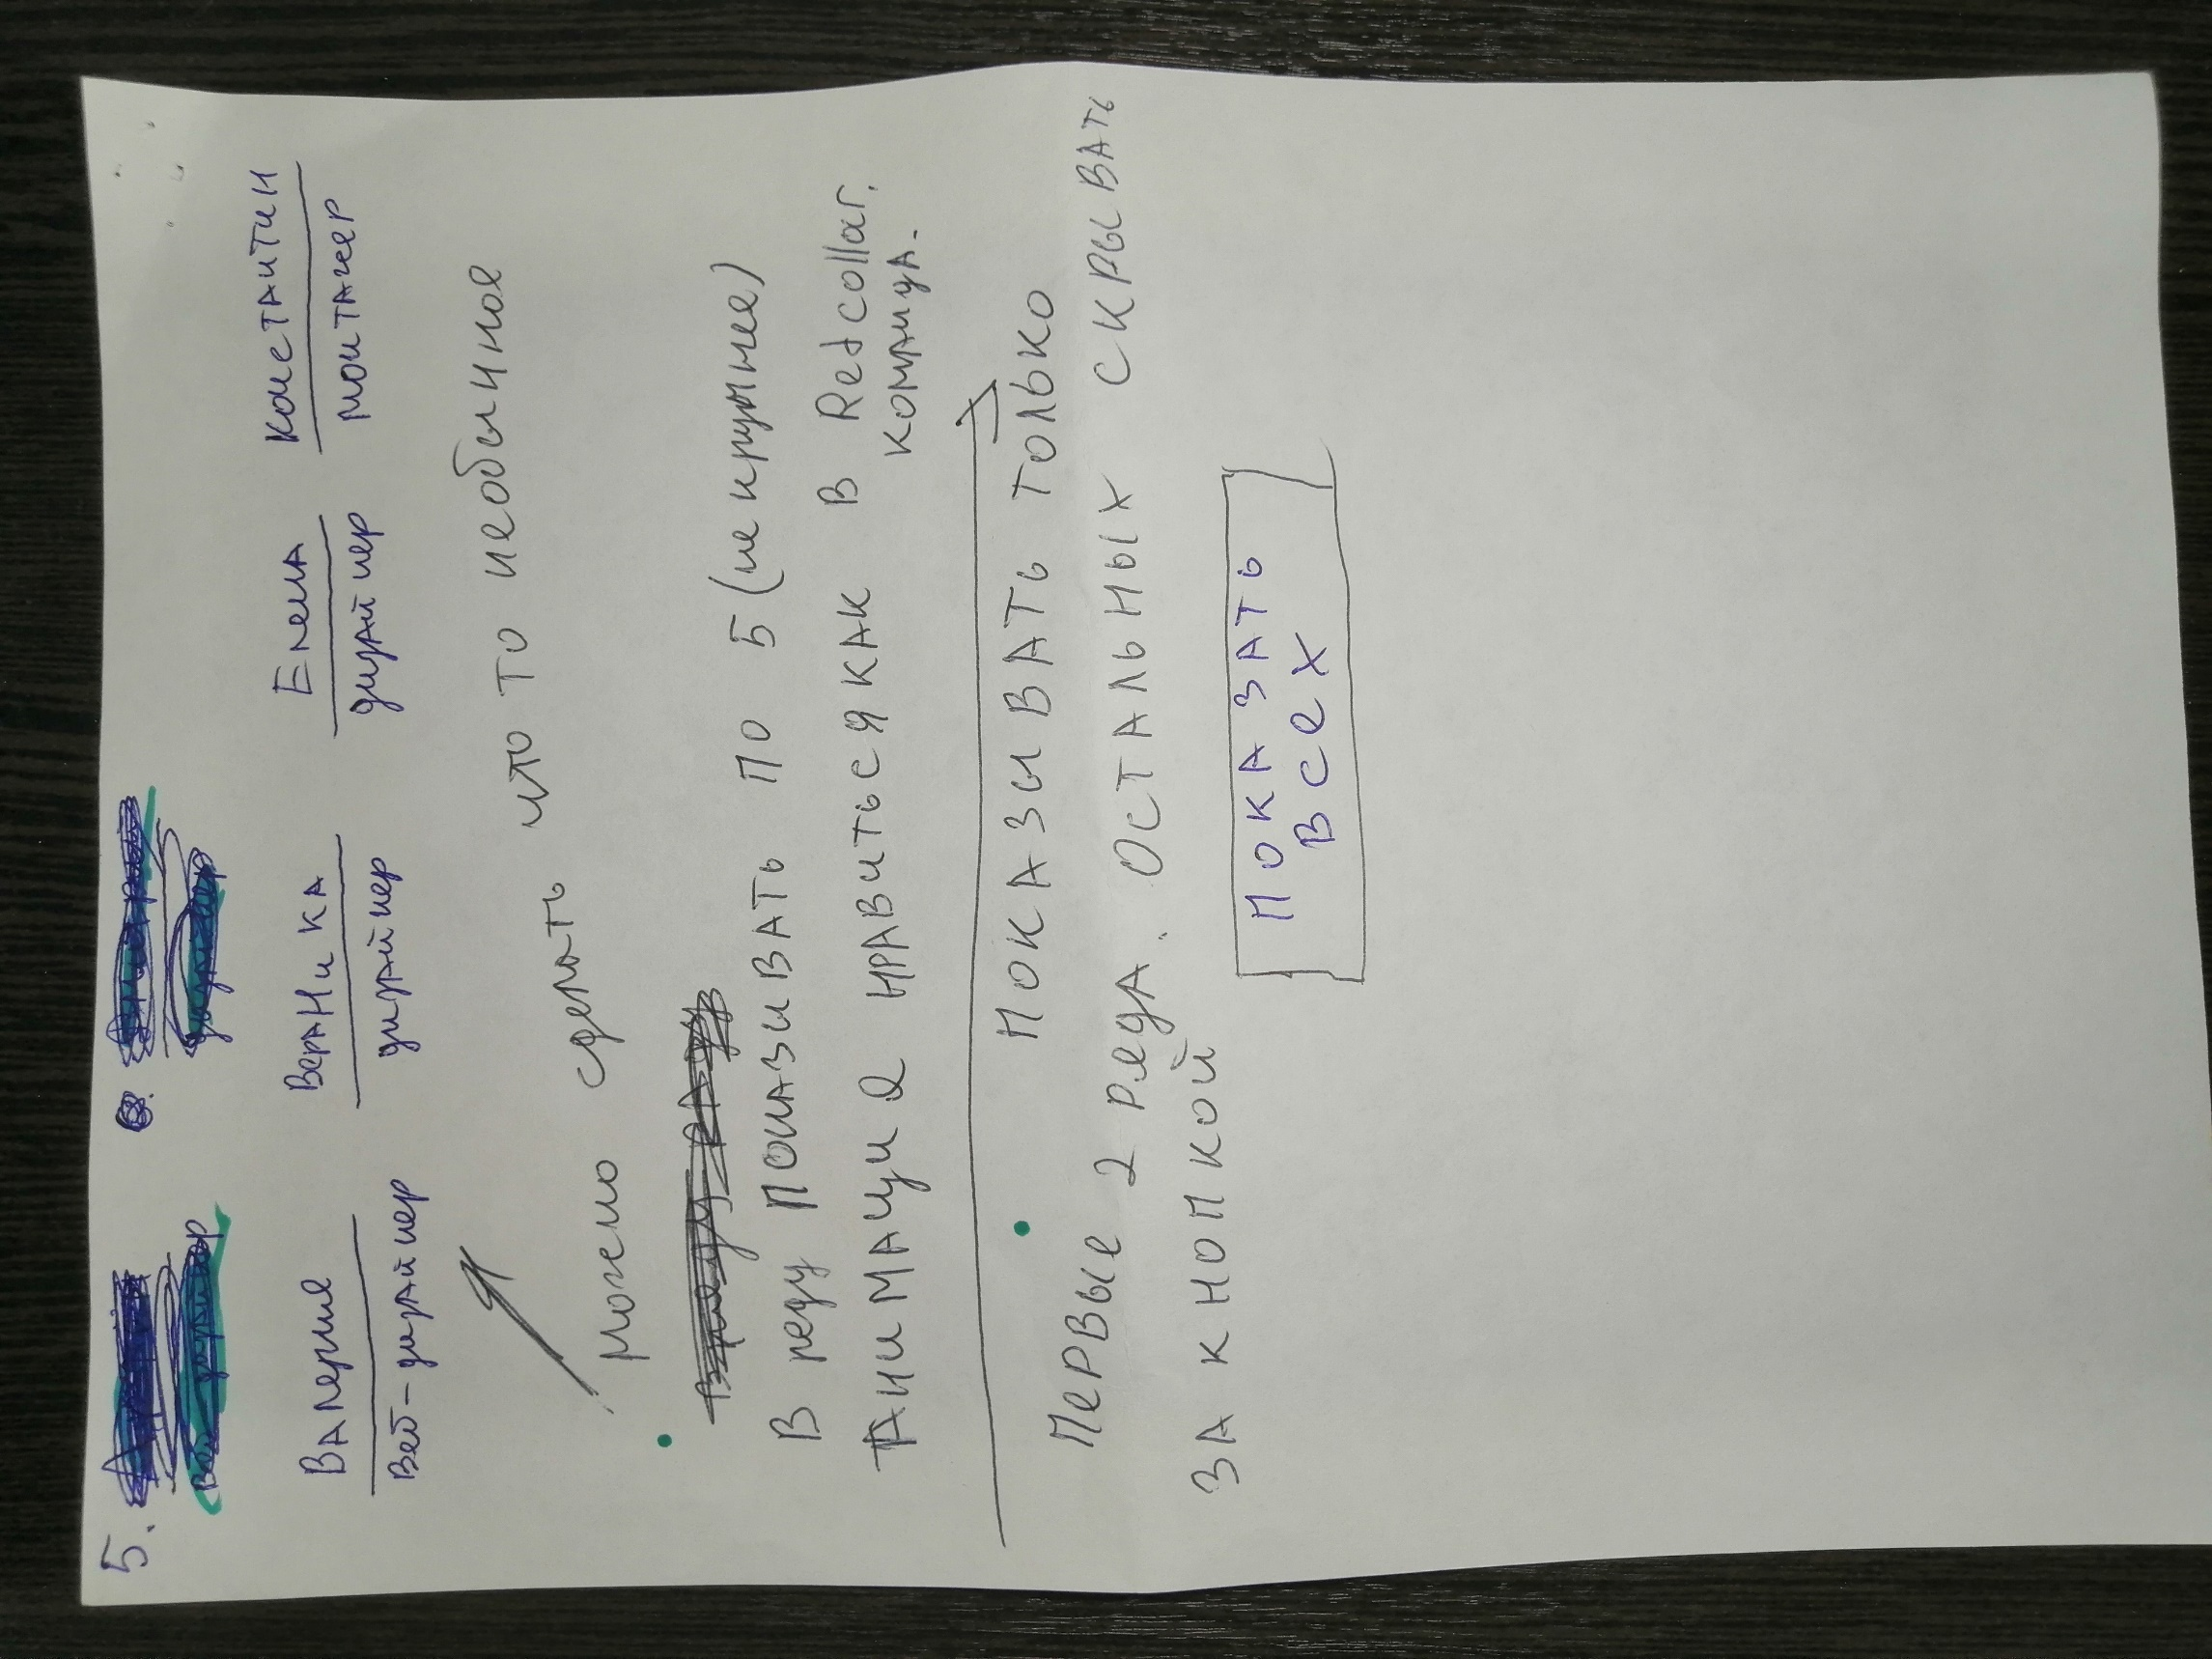 5.
Валерия Вераника Елена Констаитин
Веб-дизайнер дизайнер дизайнер монтажер
можно сделать что то необычное
В ряду показывать по 5 (не крупнее)
Анимация нравиться как в Redcollar.
команда.
Показывать только
первые 2 ряда. Остальных скрывать
за кнопкой
Показать
всех